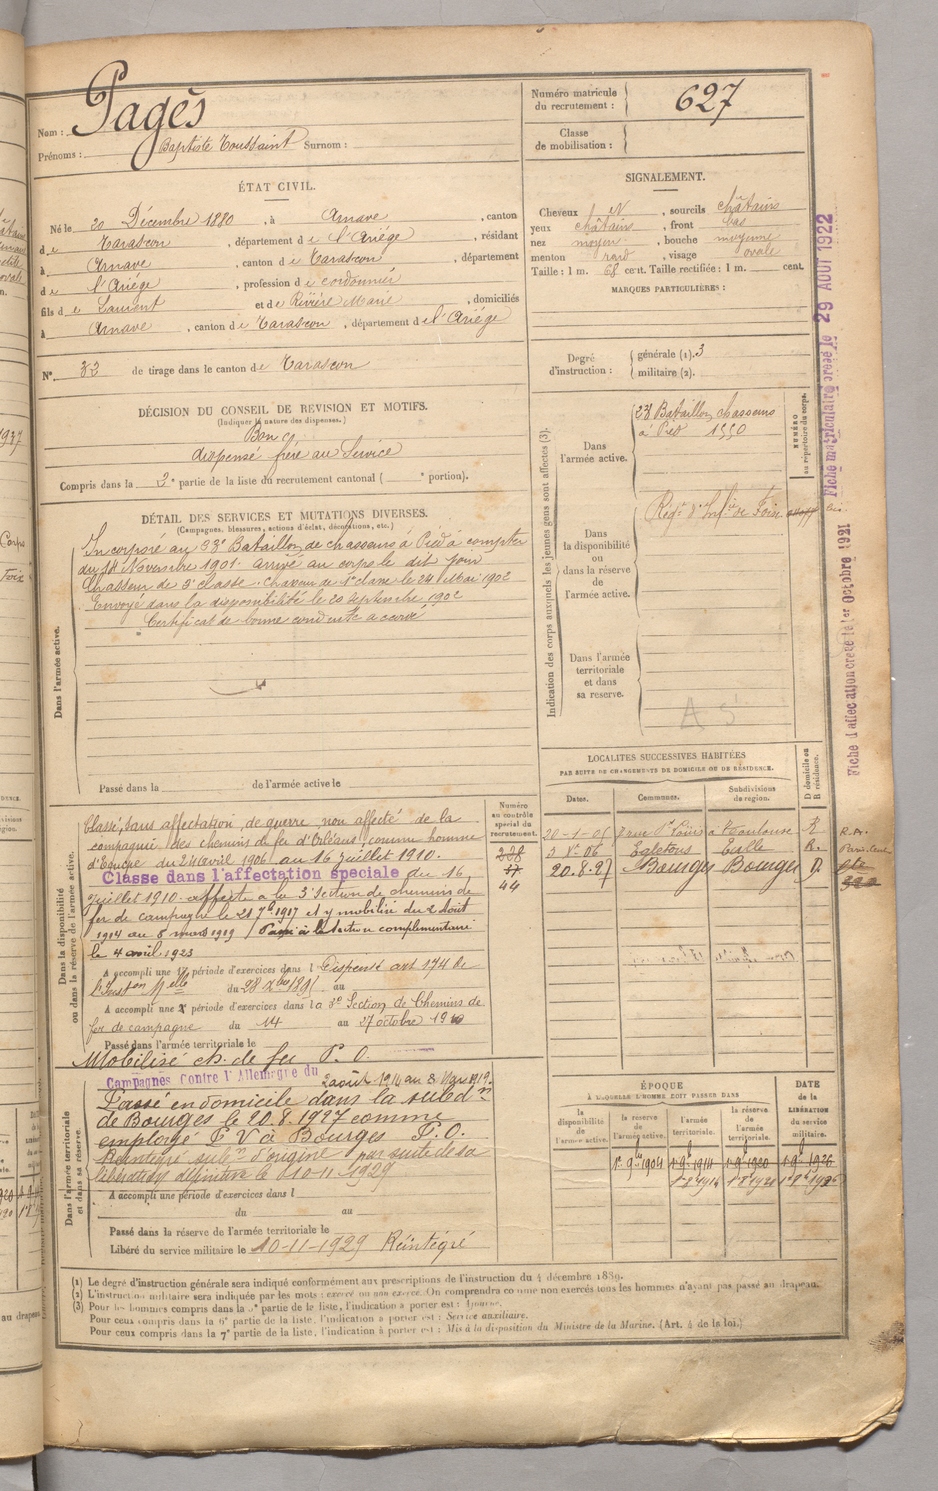 Nom : Pagès
Prénoms : Baptiste Toussaint Surnom :
Numéro matricule
du recrutement : 627
Classe
de mobilisation :
ÉTAT CIVIL.
Né le 20 Décembre 1880, à Arnave, canton
de Tarascon, département de l'Ariége, résidant
à Arnave, canton de Tarascon, département
de l'Ariége, profession de cordonnier
fils de Laurent et de Rivière Marie, domiciliés
à Arnave, canton de Tarascon, département de l'Ariége
N° 33 de tirage dans le canton de Tarascon
SIGNALEMENT.
Cheveux N, sourcils châtains
yeux châtains, front bas
nez moyen, bouche moyenne
menton rond, visage ovale
Taille : 1 m. 68 cent. Taille rectifiée : 1 m. cent.
MARQUES PARTICULIÈRES :
Degré
d'instruction :
générale (1). 3
militaire (2).
DÉCISION DU CONSEIL DE REVISION ET MOTIFS.
(Indiquer la nature des dispenses.)
Bon
dispensé frère au Service
Compris dans la 2e partie de la liste du recrutement cantonal ( e portion).
DÉTAIL DES SERVICES ET MUTATIONS DIVERSES.
(Campagnes, blessures, actions d'éclat, décorations, etc.)
Dans l'armée active.
Incorporé au 23e Bataillon de chasseurs à Pied à compter
du 14 Novembre 1901. arrivé au corps le dit jour
Chasseur de 2e classe. Chasseur de 1e classe le 24 Mai 1902
Envoyé dans la disponibilité le 20 Septembre 1902
Certificat de bonne conduite accordé
Passé dans la de l'armée active le
Indication des corps auxquels les jeunes gens sont affectés (3).
NUMÉRO
au répertoire du corps.
Dans
l'armée active.
23e Bataillon chasseurs
à Pied 1550
Dans
la disponibilité
ou
dans la réserve
de
l'armée active.
Régt d'Infie de Foix
Dans l'armée
territoriale
et dans
sa réserve.
Fiche matriculaire créée le 29 AOUT 1922
Fiche d'affectation créée le 1er Octobre 1921
LOCALITÉS SUCCESSIVES HABITÉES
PAR SUITE DE CHANGEMENTS DE DOMICILE OU DE RÉSIDENCE.
D domicile ou
R résidence.
Dates. Communes. Subdivisions
de région.
20-1-05 rue St Louis à Toulouse R
06 Egletons Tulle R.
20.8.27 Bourges Bourges D.
Numéro
au contrôle
spécial du
recrutement.
44
Dans la disponibilité
ou dans la réserve de l'armée active.
Classé, sans affectation, de guerre, non affecté de la
compagnie des chemins de fer d'Orléans, comme homme
d'Equipe du 24 avril 1906 au 16 juillet 1910.
Classé dans l'affectation spéciale du 16
juillet 1910. affecté à la 3e Section de chemins de
fer de campagne le 21 7bre 1917 et y mobilisé du 2 Août
1914 au 8 mars 1919 / Passé à la section complémentaire
le 4 avril 1923
A accompli une 1re période d'exercices dans l Dispensé art 174 de
l'Inston Mlle du 28 au
A accompli une 2e période d'exercices dans la 3e Section de Chemins de
fer de campagne du 14 au 27 octobre 1910
Passé dans l'armée territoriale le
Mobilisé ch. de fer P. O.
Dans l'armée territoriale
et dans sa réserve.
Campagnes Contre l'Allemagne du 2 août 1914 au 8 Mars 1919.
Passé en domicile dans la subdon
de Bourges le 20.8.1927 comme
employé P V à Bourges P.O.
Réintégré subon d'origine par suite de sa
libération définitive le 10-11-1929
A accompli une période d'exercices dans l
du au
Passé dans la réserve de l'armée territoriale le
Libéré du service militaire le 10-11-1929 Réintégré
ÉPOQUE
À LAQUELLE L'HOMME DOIT PASSER DANS
DATE
de la
LIBÉRATION
du
service
militaire.
la
disponibilité
de
l'armée active.
la réserve
de
l'armée active.
l'armée
territoriale.
la réserve
de
l'armée
territoriale.
1er 9bre 1904 1er 9bre 1914 1er 9bre 1920 1er 9bre 1926
(1) Le degré d'instruction générale sera indiqué conformément aux prescriptions de l'instruction du 4 décembre 1889.
(2) L'instruction militaire sera indiquée par les mots : exercé ou non exercé. On comprendra comme non exercés tous les hommes n'ayant pas passé au drapeau.
(3) Pour les hommes compris dans la 5e partie de la liste, l'indication à porter est : Ajourné.
Pour ceux compris dans la 6e partie de la liste, l'indication à porter est : Service auxiliaire.
Pour ceux compris dans la 7e partie de la liste, l'indication à porter est : Mis à la disposition du Ministre de la Marine. (Art. 4 de la loi.)